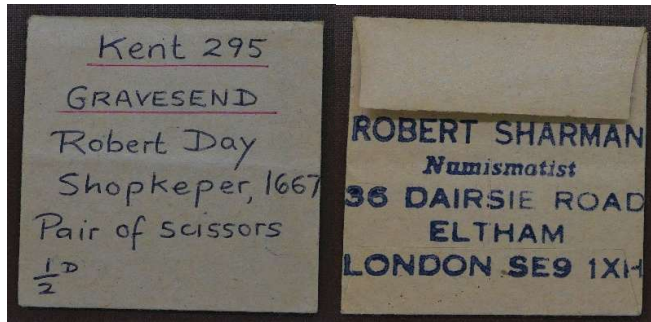 Kent 295
GRAVESEND
Robert Day
Shopkeper, 1667
Pair of scissors
½ D
ROBERT SHARMAN
Numismatist
36 DAIRSIE ROAD
ELTHAM
LONDON SE9 1XH